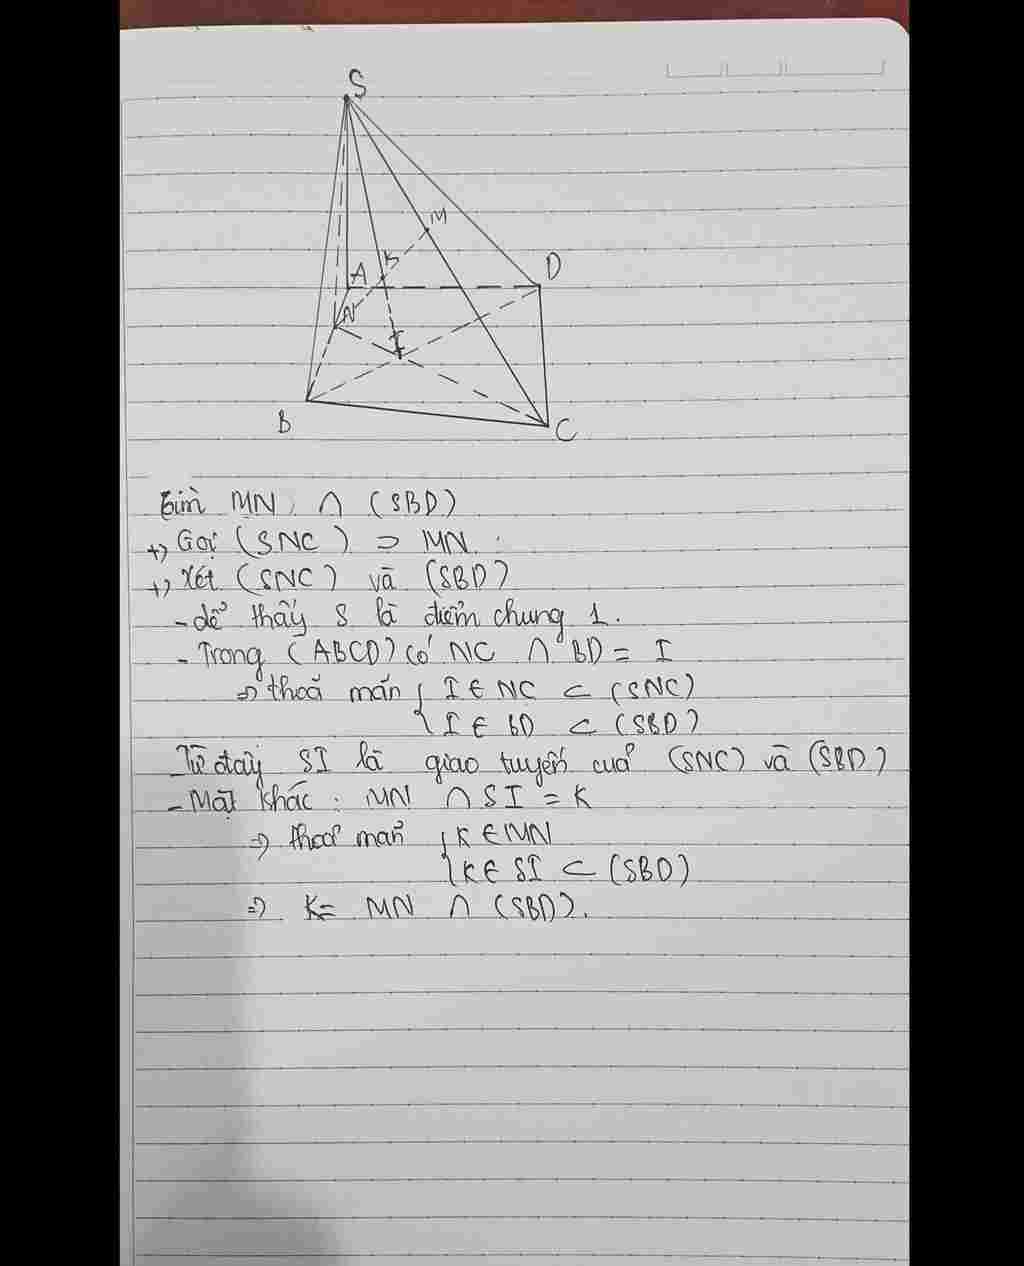 S
M
K
A
D
N
I
B
C
Tìm MN ∩ (SBD)
+, Gọi (SNC) ⊃ MN.
+, Xét (SNC) và (SBD)
- dễ thấy S là điểm chung 1.
- Trong (ABCD) có NC ∩ BD = I
=> thoả mãn { I ∈ NC ⊂ (SNC)
{ I ∈ BD ⊂ (SBD)
- Từ đây SI là giao tuyến của (SNC) và (SBD)
- Mặt khác : MN ∩ SI = K
=> thoả mãn { K ∈ MN
{ K ∈ SI ⊂ (SBD)
=> K = MN ∩ (SBD).